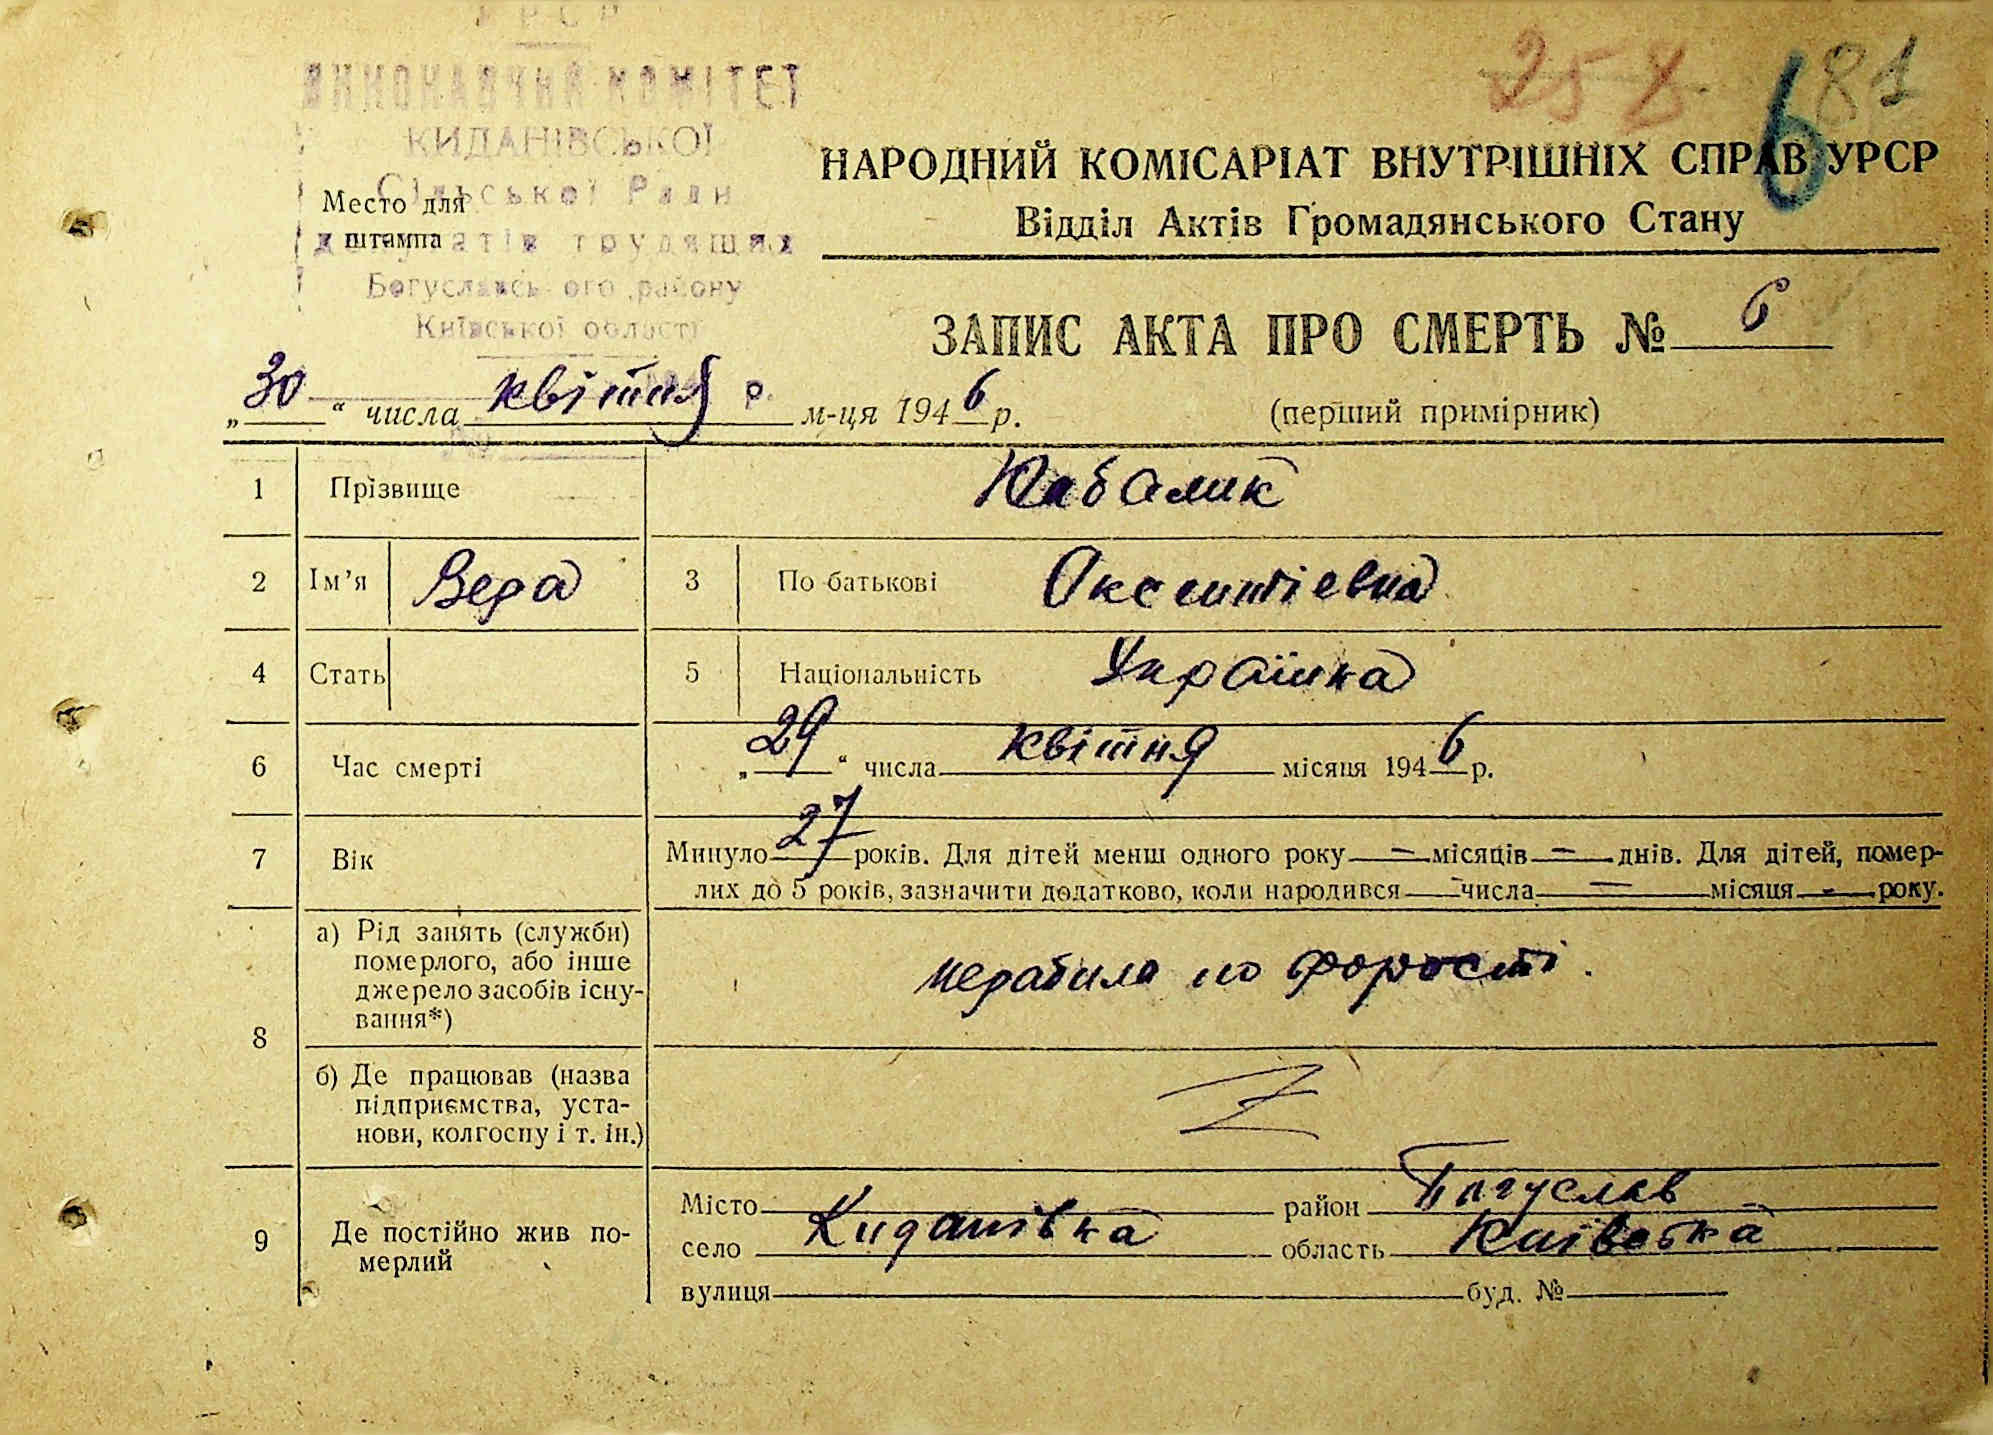 УРСР
ВИКОНАВЧИЙ КОМІТЕТ
КИДАНІВСЬКОЇ
Сільської Ради
депутатів трудящих
Богуславського району
Київської області
Место для
штампа
258
6
81
НАРОДНИЙ КОМІСАРІАТ ВНУТРІШНІХ СПРАВ УРСР
Відділ Актів Громадянського Стану
ЗАПИС АКТА ПРО СМЕРТЬ № 6
„30“ числа квітня м-ця 1946 р.
(перший примірник)
1 Прізвище Кабалик
2 Ім’я Вера 3 По батькові Оксентіевна
4 Стать 5 Національність Українка
6 Час смерті „29“ числа квітня місяця 1946 р.
7 Вік Минуло 27 років. Для дітей менш одного року — місяців — днів. Для дітей, помер-
лих до 5 років, зазначити додатково, коли народився — числа — місяця - року.
8 а) Рід занять (служби)
померлого, або інше
джерело засобів існу-
вання*)
нерабила по форості.
б) Де працював (назва
підприємства, уста-
нови, колгоспу і т. ін.)
9 Де постійно жив по-
мерлий
Місто район Богуслав
село Киданівка область Київська
вулиця буд. №